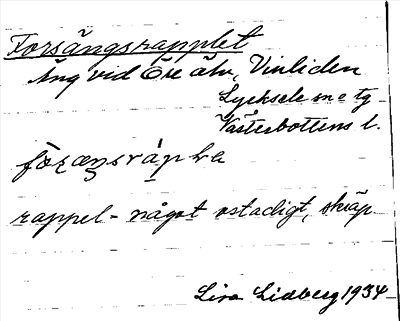 Forsängsrapplet
Äng vid Öre älv, Vinliden
Lycksele sn o tg
Västerbottens l.
rappel - något ostadigt, skräp
Lisa Lidberg 1934